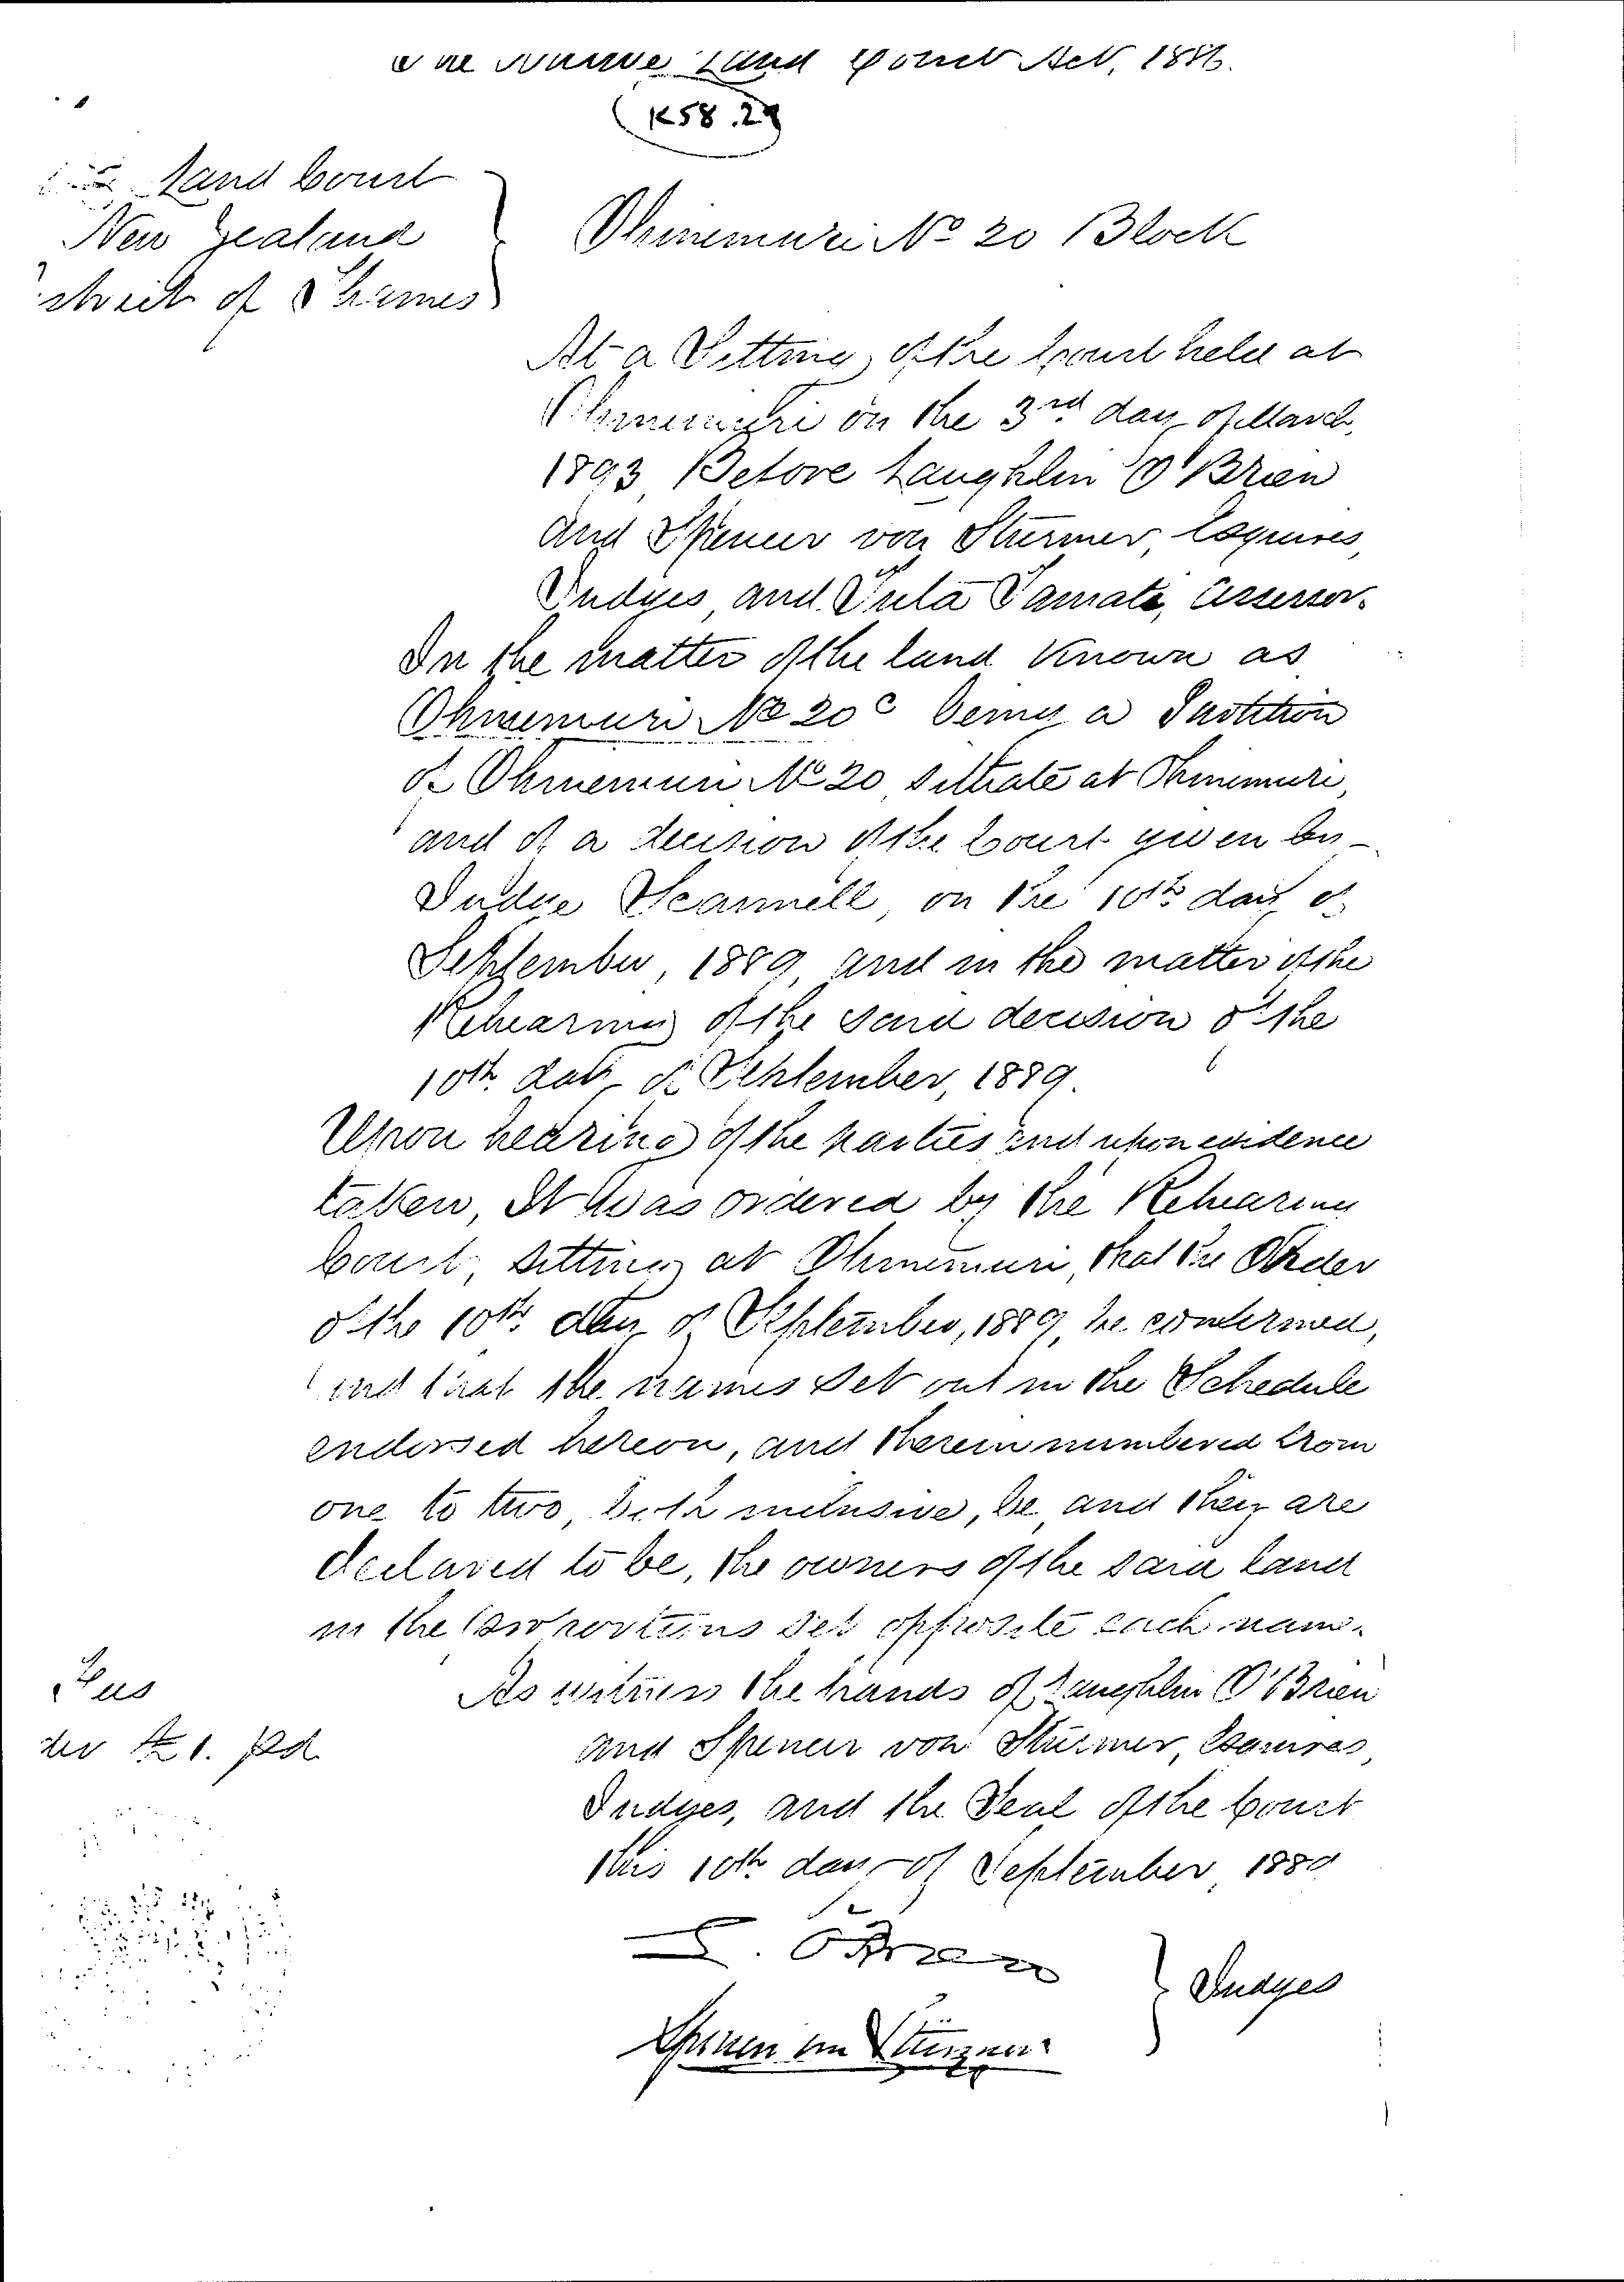 The Native Land Court Act, 1886.
K58.29
Land Court
New Zealand
District of Thames
Ohinemuri No 20 Block
At a Sitting of the Court held at
Ohinemuri on the 3rd day of March,
1893, Before Laughlin O'Brien
and Spencer von Sturmer, Esquires,
Judges, and Tuta Tamati, Assessor.
In the matter of the land Known as
Ohinemuri No 20c being a Partition
of Ohinemuri No 20, situate at Ohinemuri,
and of a decision of the Court given by
Judge Scannell, on the 10th day of
September, 1889, and in the matter of the
Rehearing of the said decision of the
10th day of September, 1889.
Upon hearing of the parties and upon evidence
taken, It was ordered by the Rehearing
Court, sitting at Ohinemuri, that the Order
of the 10th day of September, 1889, be confirmed,
and that the names set out in the Schedule
endorsed hereon, and therein numbered from
one to two, both inclusive, be, and they are
declared to be, the owners of the said land
in the proportions set opposite each name.
As witness the hands of Laughlin O'Brien
and Spencer von Sturmer, Esquires,
Judges, and the Seal of the Court
this 10th day of September, 1889
£1. pd
L. O'Brien
Judges
Spencer von Stürmer